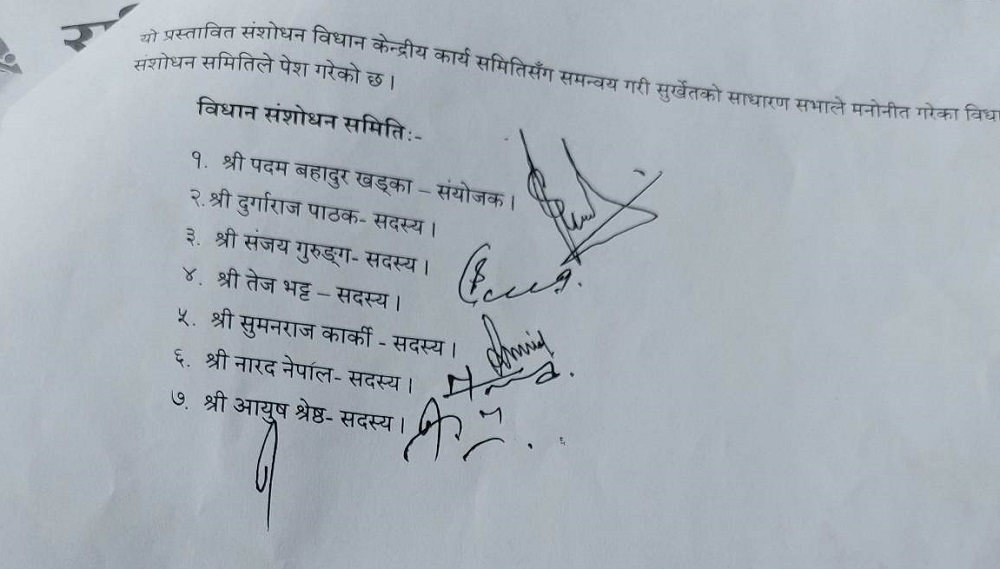 यो प्रस्तावित संशोधन विधान केन्द्रीय कार्य समितिसँग समन्वय गरी सुर्खेतको साधारण सभाले मनोनीत गरेका विधा
संशोधन समितिले पेश गरेको छ।
विधान संशोधन समितिः-
१. श्री पदम बहादुर खड्का – संयोजक।
२.श्री दुर्गाराज पाठक- सदस्य।
३. श्री संजय गुरुङ्ग- सदस्य।
४. श्री तेज भट्ट – सदस्य।
५. श्री सुमनराज कार्की - सदस्य।
६. श्री नारद नेपाल- सदस्य।
७. श्री आयुष श्रेष्ठ- सदस्य।